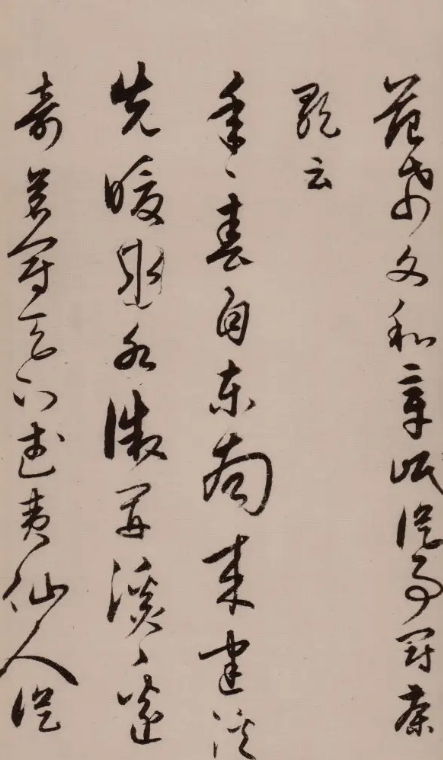 范希文和章岷從事鬥茶
歌云
年〻春自東南來建溪
先暖水微開溪〻邊
奇茗冠天下武夷仙人從